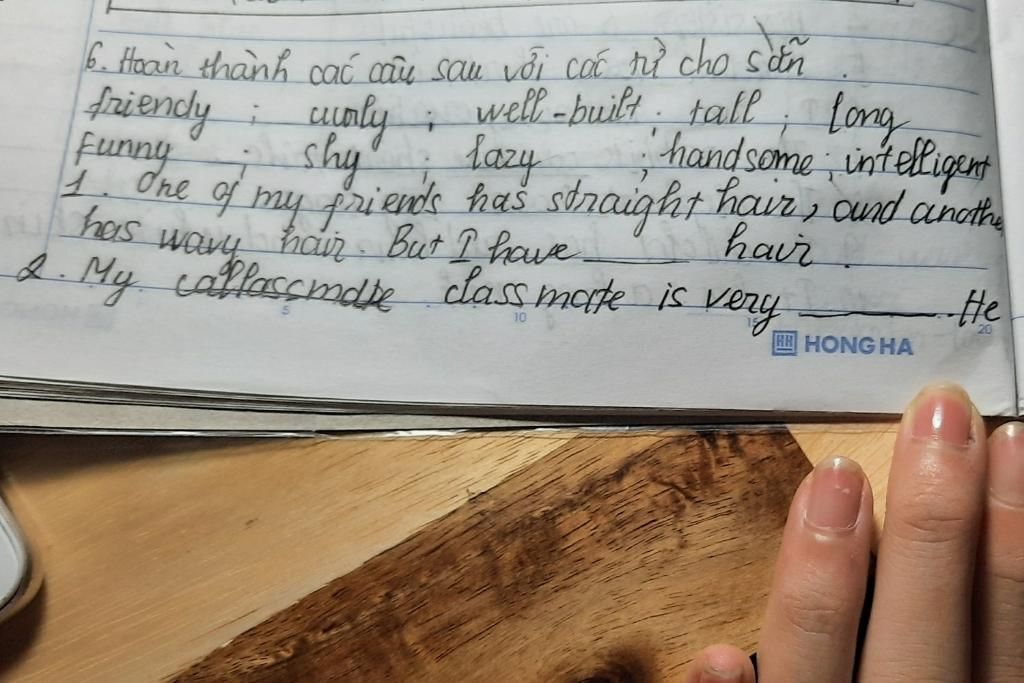 6. Hoàn thành các câu sau với các từ cho sẵn.
friendy ; curly ; well-built ; tall ; long
Funny ; shy ; lazy ; handsome ; intelligent
1. One of my friends has straight hair, and anothe
has wavy hair. But I have ______ hair.
2. My classmate is very ________. He
5 10 15 20
HONG HA